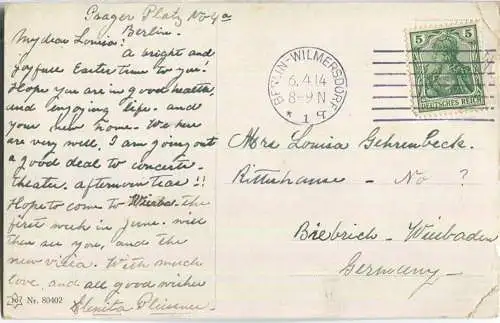 Praager Platz No 4a
Berlin.
My dear Louisa!
A bright and
joyfull Easter time to you!
Hope you are in good health
and enjoying life. and
your new home. We here
are very well, I am going out
a good deal to concerts.
theater. afternoon teas!!
Hope to come to Wiesb. the
first week in June. will
then see you, and the
new villa. With much
love, and all good wishes
Nr. 80402
BERLIN-WILMERSDORF
6.4.14
8-9 N
* 1
5 5
DEUTSCHES REICH
Mrs Louisa Gehrenbeck.
Ritterhause - No ?
Biebrich - Wiesbaden
Germany -